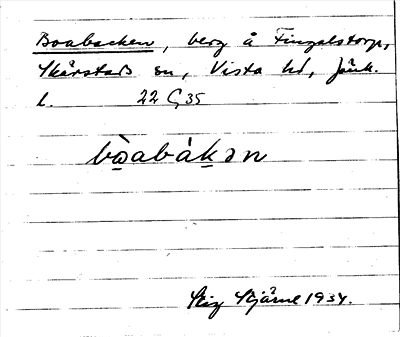 Boabacken, berg å Fingalstorp,
Skärstads sn, Vista hd, Jönk.
l. 22 Ç 35
bòabákən
Stig Stjärne 1934.